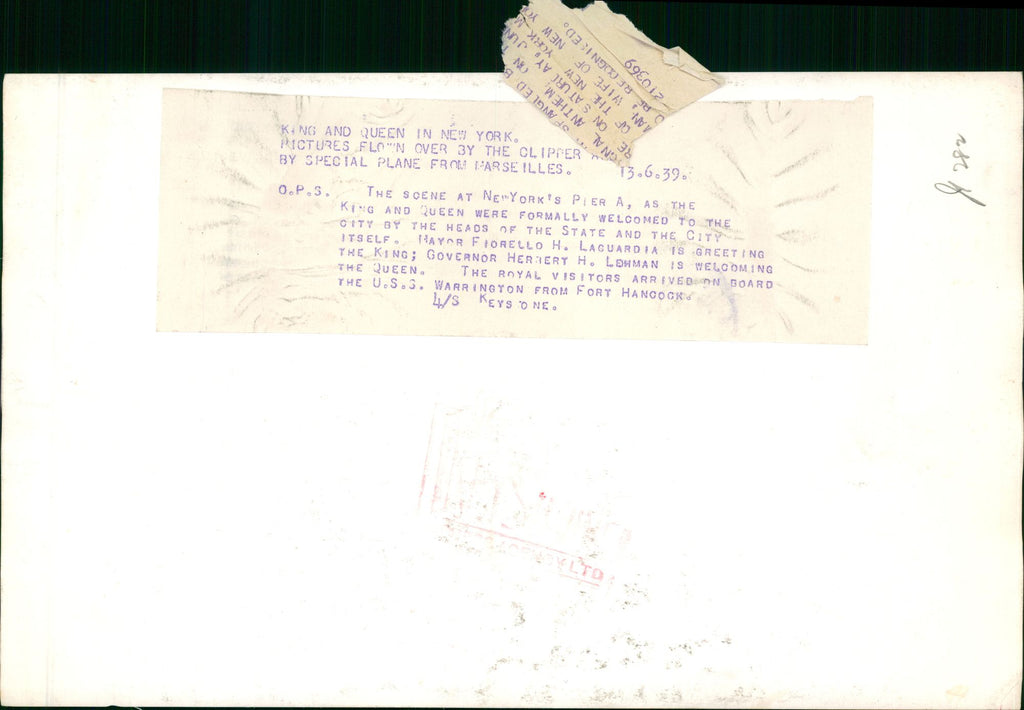 KING AND QUEEN IN NEW YORK.
PICTURES FLOWN OVER BY THE CLIPPER
BY SPECIAL PLANE FROM MARSEILLES. 13.6.39.
O.P.S. THE SCENE AT NEWYORK'S PIER A, AS THE
KING AND QUEEN WERE FORMALLY WELCOMED TO THE
CITY BY THE HEADS OF THE STATE AND THE CITY
ITSELF. MAYOR FIORELLO H. LAGUARDIA IS GREETING
THE KING; GOVERNOR HERBERT H. LEHMAN IS WELCOMING
THE QUEEN. THE ROYAL VISITORS ARRIVED ON BOARD
THE U.S.S. WARRINGTON FROM FORT HANCOCK.
4/S KEYSTONE.
SPANGLED
ANTHEM ON
ON SATURDAY, JUN
OF THE NEW YORK
MAN, WIFE OF NEW
RE RECOGNISED.
210369
LTD